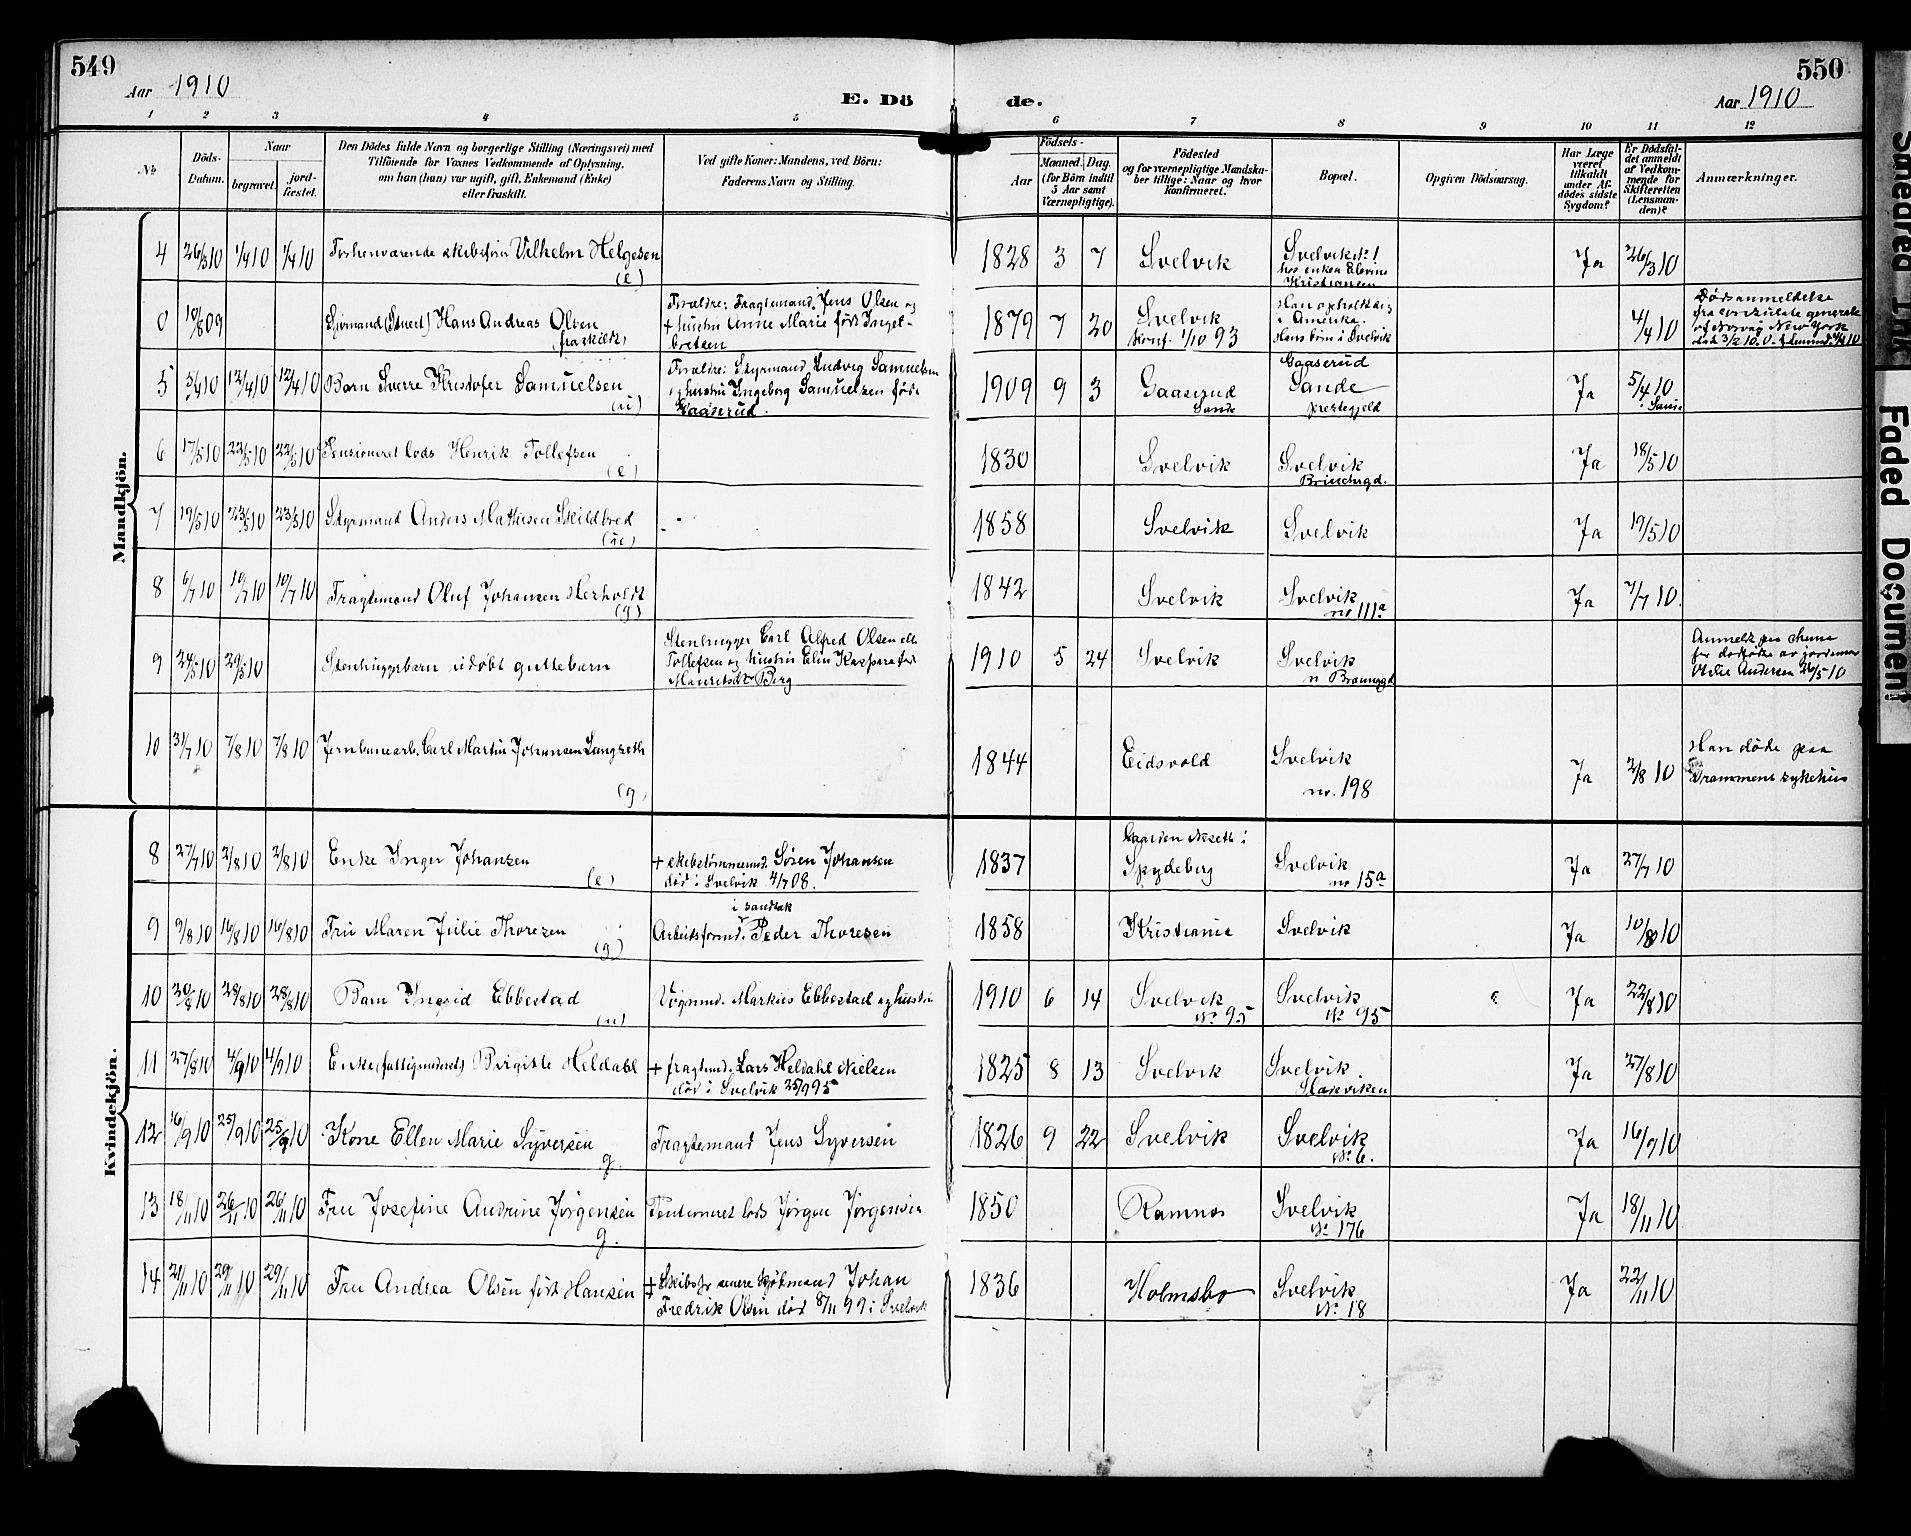 549
Aar 1910
E. Dö
de.
550
Aar 1910
1 2 3 4 5 6 7 8 9 10 11 12
No
Döds-
Datum.
Naar
begravet.
jord-
fæstet.
Den Dödes fulde Navn og borgerlige Stilling (Næringsvei) med
Tilföiende for Voxnes Vedkommende af Oplysning,
om han (hun) var ugift, gift, Enkemand (Enke)
eller fraskilt.
Ved gifte Koner: Mandens, ved Börn:
Faderens Navn og Stilling.
Födsels-
Aar
Maaned. Dag.
(for Börn indtil
5 Aar samt
Værnepligtige).
Födested
og for værnepligtige Mandska-
ber tillige: Naar og hvor
konfirmeret.
Bopæl.
Opgiven Dödsaarsag.
Har Læge
været
tilkaldt
under Af-
dödes sidste
Sygdom?
Er Dödsfal-
det anmeldt
af Vedkom-
mende for
Skifteretten
(Lensman-
den)?
Anmærkninger.
Mandkjön.
4 26/3 10 1/4 10 1/4 10 Forhenværende skibsfører Vilhelm Helgesen (e) 1828 3 7 Svelvik Svelvik No 1
hos enken Elevine
Kristiansen
Ja 26/3 10
0 10/8 09 Sjømand (Stuert) Hans Andreas Olsen
(fraskilt)
Forældre: Fragtemand Jens Olsen og
+ hustru Anne Marie født Ingel-
bretsen
1879 7 20 Svelvik
Konf. 1/10 93
Han opholdt sig
i Amerika.
Hans børn i Svelvik
4/4 10
Dødsanmeldelse
fra konsulate generale
of Norway New York
dat 3/2 10.
5 5/4 10 12/4 10 12/4 10 Barn Sverre Kristofer Samuelsen
(u)
Forældre: Styrmand Ludvig Samuelsen
og hustru Ingeborg Samuelsen født
Gaaserud.
1909 9 3 Gaaserud
Sande
Gaaserud
Sande
prestegjeld
Ja 5/4 10
i Sande
6 17/5 10 22/5 10 22/5 10 Pensioneret lods Henrik Tollefsen
(e)
1830 Svelvik Svelvik
Brinchsgd.
Ja 18/5 10
7 19/5 10 23/5 10 23/5 10 Styrmand Anders Mathisen Skildbred
(u)
1858 Svelvik Svelvik Ja 19/5 10
8 6/7 10 10/7 10 10/7 10 Fragtemand Oluf Johansen Herholdt
(g)
1842 Svelvik Svelvik
no 111a
Ja 7/7 10.
9 24/5 10 29/5 10 Stenhuggerbarn udøbt guttebarn
Stenhugger Carl Alfred Olsen ell.
Tollefsen og hustru Elin Kaspara født
Mauritsdtr Berg
1910 5 24 Svelvik Svelvik
Anmeldt paa skema
for dødfødte av jordemor
Otilie Andersen 26/5 10
10 31/7 10 7/8 10 7/8 10 Jernbanearb. Carl Martin Johansen Langseth
(g)
1844 Eidsvold Svelvik
no. 198
Ja 2/8 10
Han døde paa
Drammens sykehus
Kvindekjön.
8 27/7 10 2/8 10 2/8 10 Enke Inger Johansen
(e)
+ skibstømmermd. Søren Johansen
død i Svelvik 4/7 08.
1837 Gaarden Næseth i
Spydeberg
Svelvik
no 15a
Ja 27/7 10
9 9/8 10 16/8 10 16/8 10 Fru Maren Julie Thoresen
(g)
i sandtak
Arbeidsformd. Peder Thoresen
1858 Kristiania Svelvik Ja 10/8 10
10 20/8 10 28/8 10 28/8 10 Barn Ingrid Ebbestad
(u)
Vognmd. Markus Ebbestad og hustru
1910 6 14 Svelvik
No 95
Svelvik
No 95
Ja 22/8 10
11 27/8 10 4/9 10 4/9 10 Enke (fattigunderst) Birgitte Heldahl
+ fragtmd. Lars Heldahl Nielsen
død i Svelvik 25/9 95
1825 8 13 Svelvik Svelvik
Mareviken
Ja 27/8 10
12 16/9 10 25/9 10 25/9 10 Kone Ellen Marie Syversen
g
Fragtemand Jens Syversen
1826 9 22 Svelvik Svelvik
No 6.
Ja 16/9 10
13 18/11 10 26/11 10 26/11 10 Fru Josefine Andrine Jørgensen
g.
Pensioneret lods Jørgen Jørgensen
1850 Ramnes Svelvik
No 176
Ja 18/11 10
14 21/11 10 29/11 10 29/11 10 Fru Andrea Olsen født Hansen
+ Skibsfr. senere kjøbmand Johan
Fredrik Olsen død 8/11 99 i Svelvik
1836 Holmsbo Svelvik
No 18
Ja 22/11 10
Smedred Ink
Faded Document